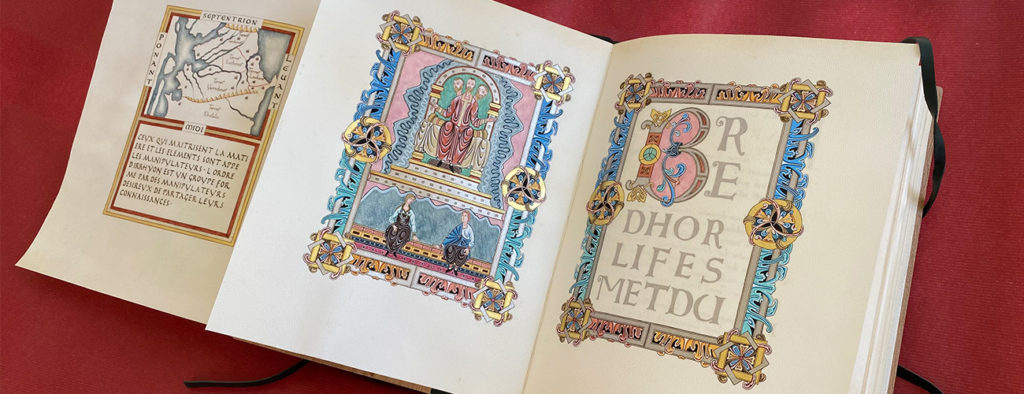 SEPTENTRION
PONANT
LEUANT
MIDI
CEUX QUI MAITRISENT LA MATI
ERE ET LES ELEMENTS SONT APPE
LES MANIPULATEURS · L ORDRE
EST UN GROUPE FOR
ME PAR DES MANIPULATEURS
DESIREUX DE PARTAGER LEURS
CONNAISSANCES ·
BR
E
DHOR
LIFES
METDU